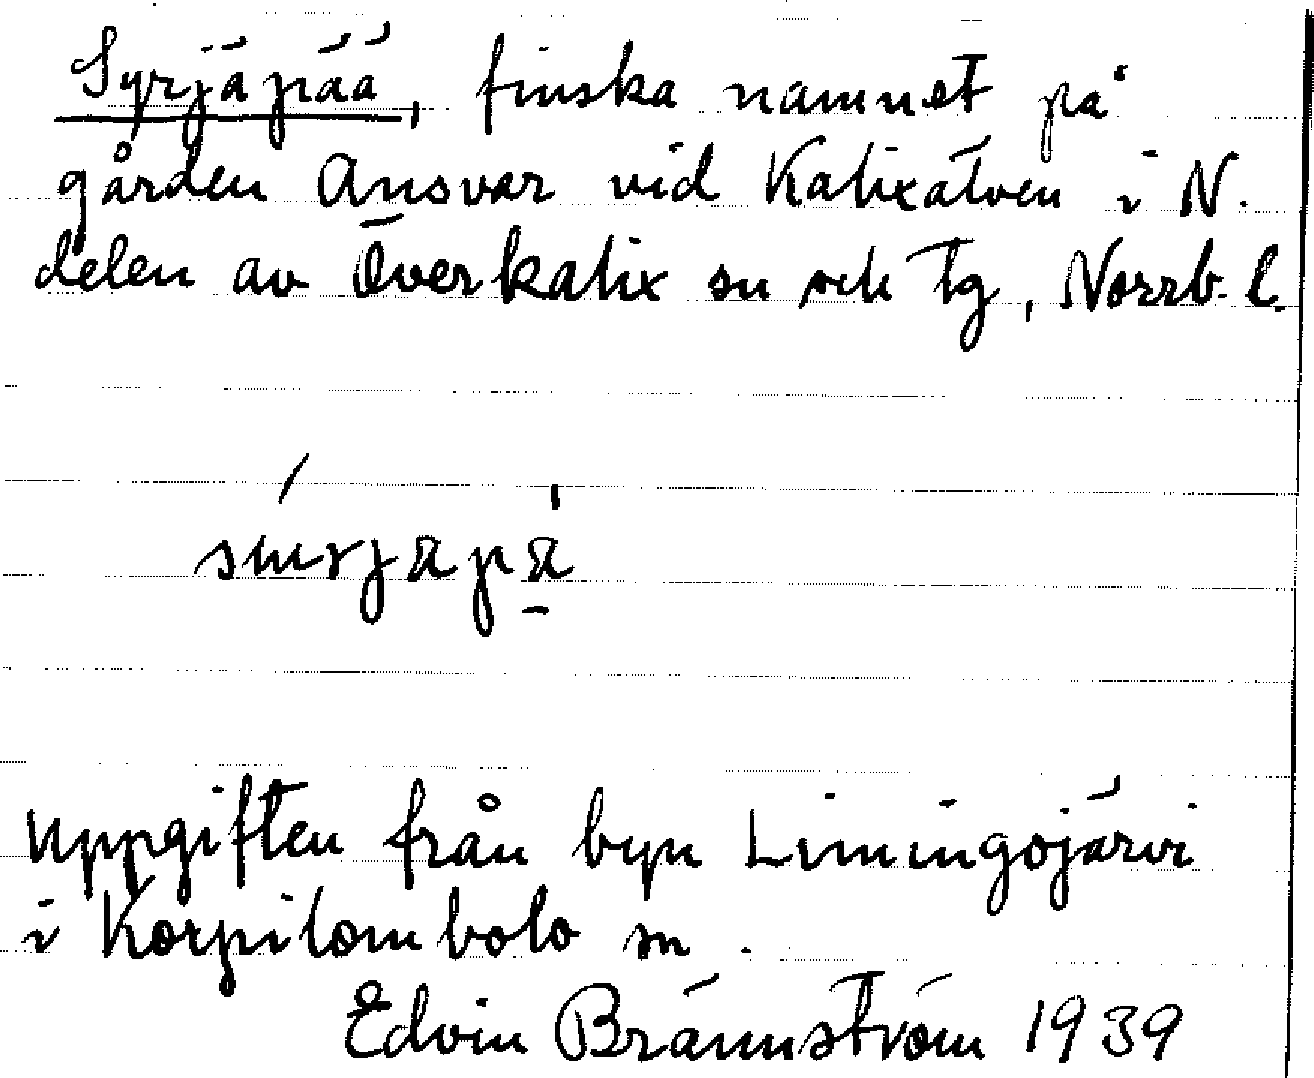 Syrjäpää, finska namnet på
gården Ansvar vid Kalixälven i N.
delen av Överkalix sn och tg, Norrb. l.
Uppgiften från byn Limingojärvi
i Korpilombolo sn.
Edvin Brännström 1939